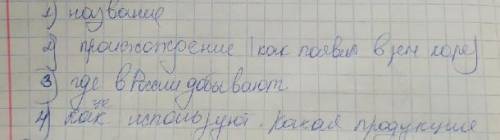 1) название
2) происхождение (как появил в зем коре)
3) где в России добывают
4) как используют. какая продукция